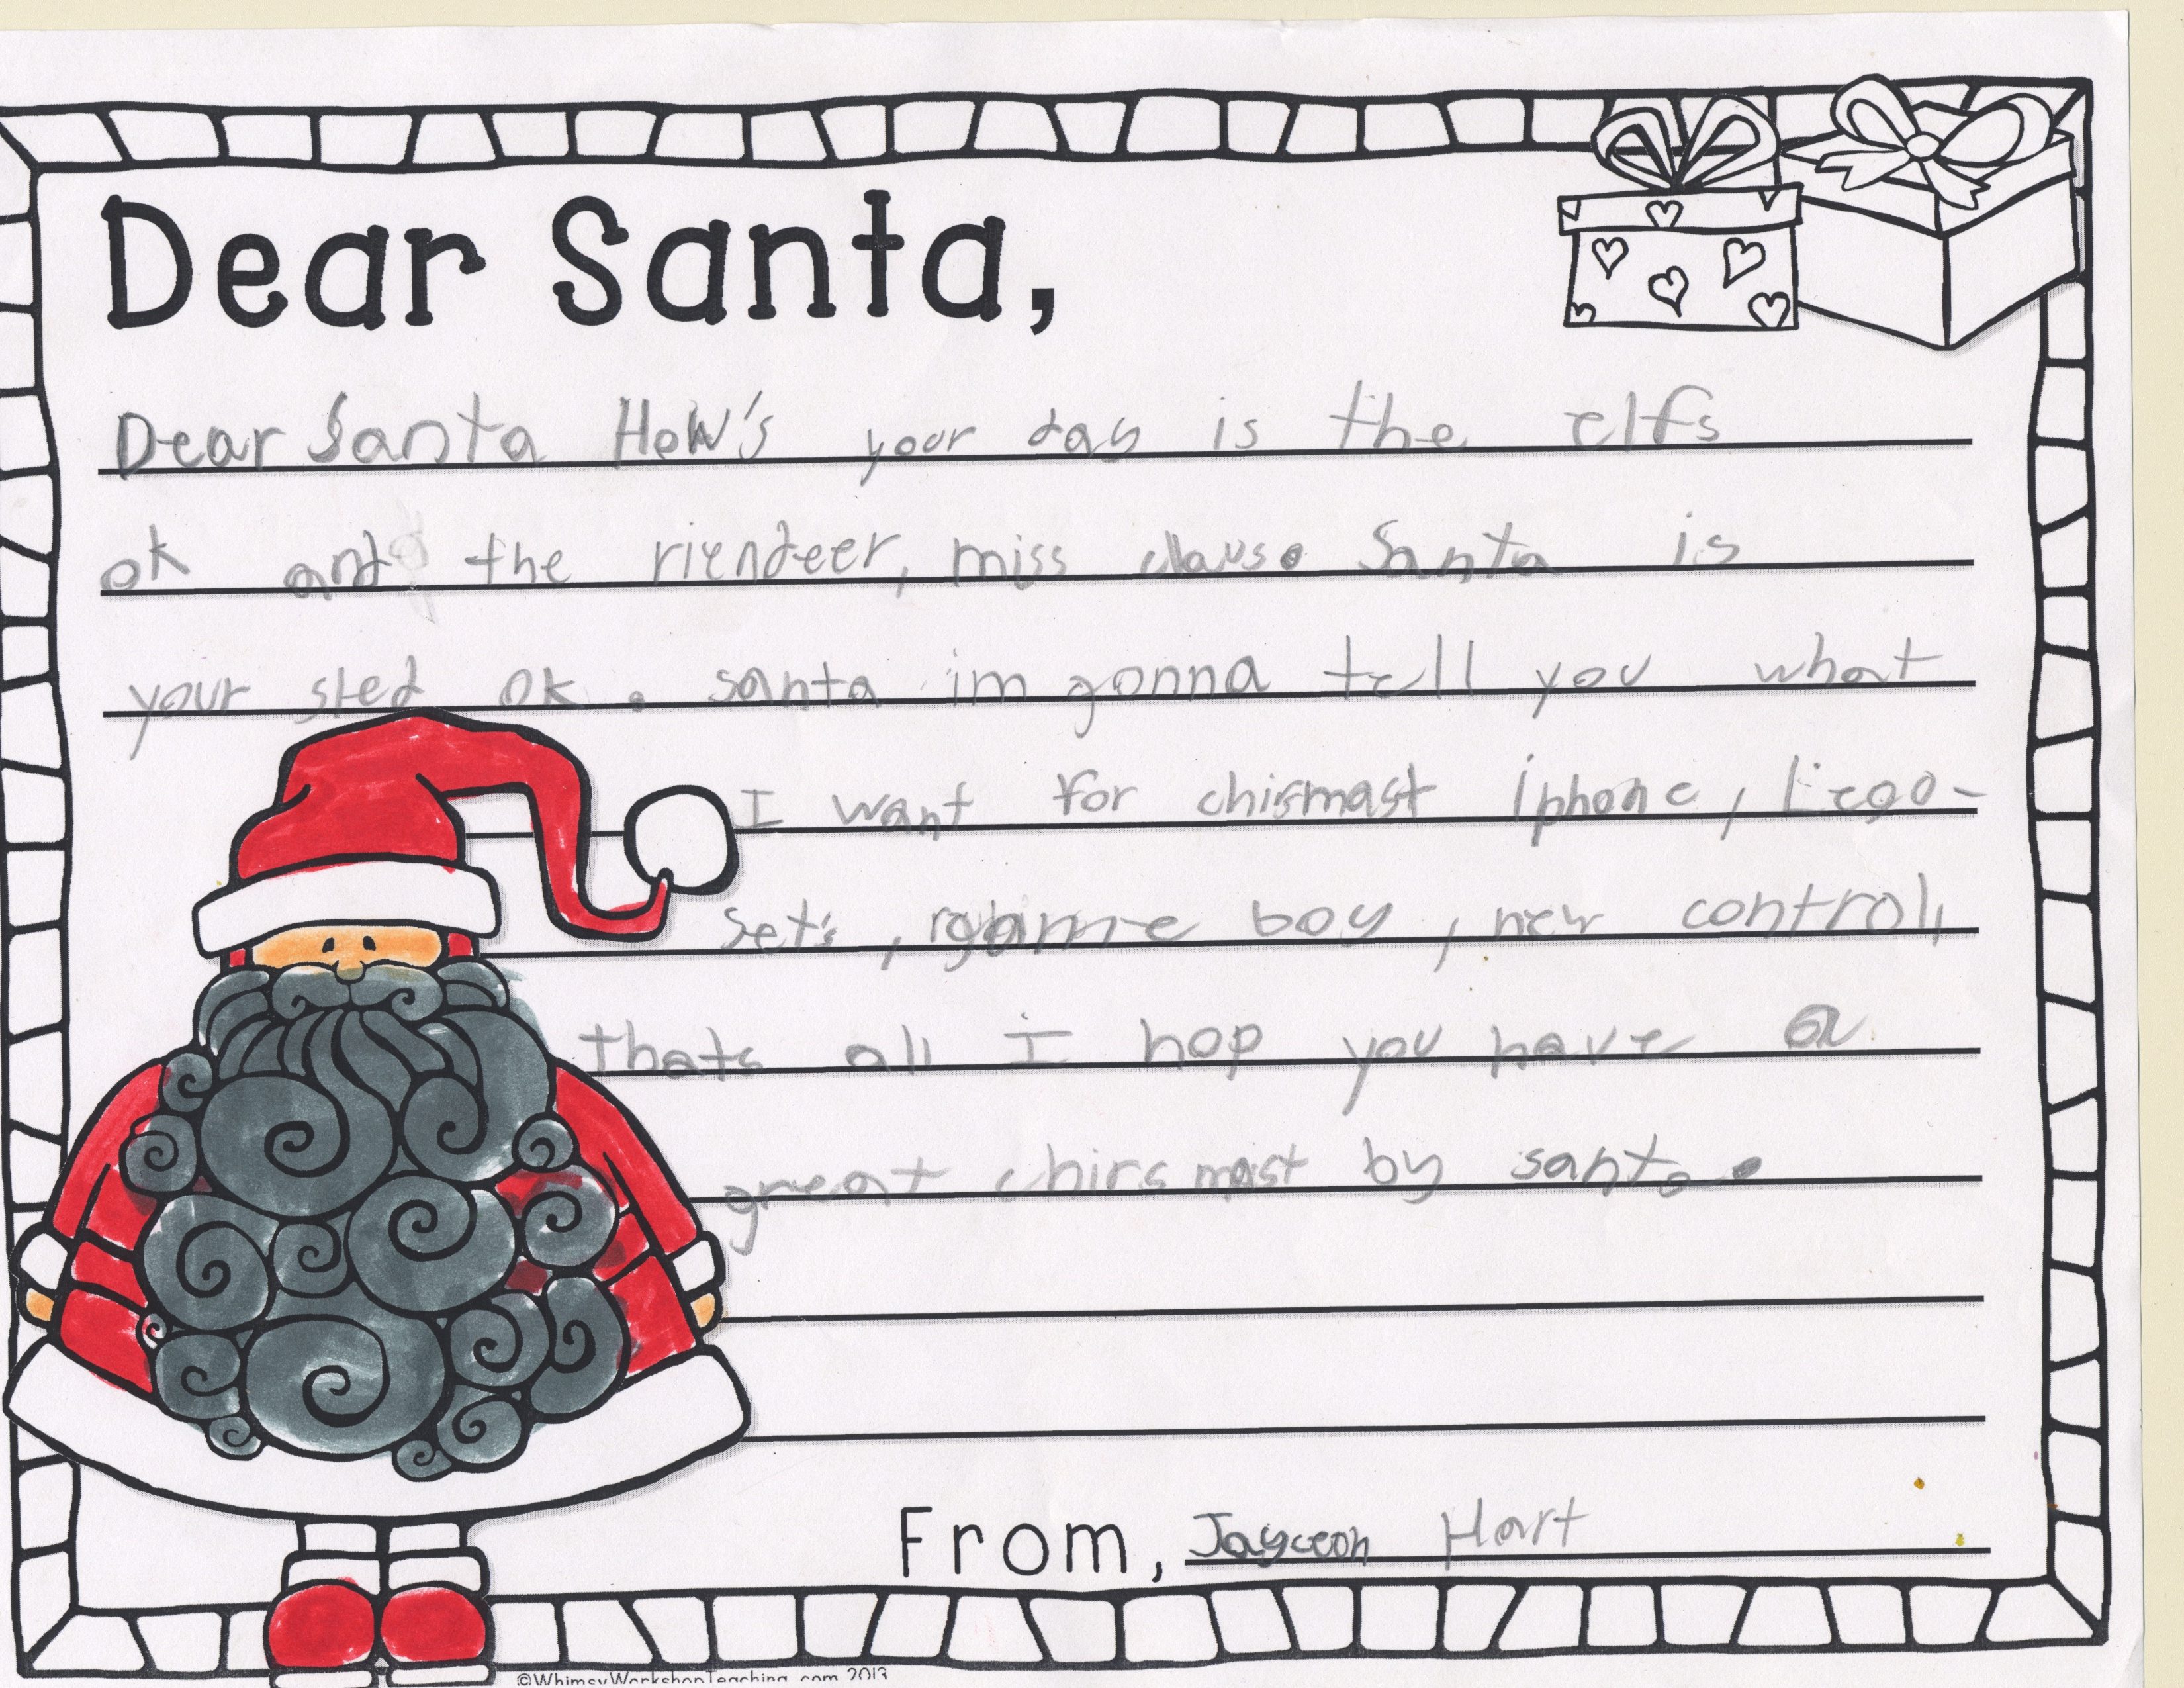 Dear Santa,
Dear Santa HoW's your day is the elfs
ok and the riendeer, miss clause Santa is
your sled ok. santa im gonna tell you what
I want for chirsmast iphone, Lego-
set's, game boy, new control,
thats all I hop you have a
great chirsmast by santa.
From, Jayceon Hart
©WhimsyWorkshopTeaching.com 2013